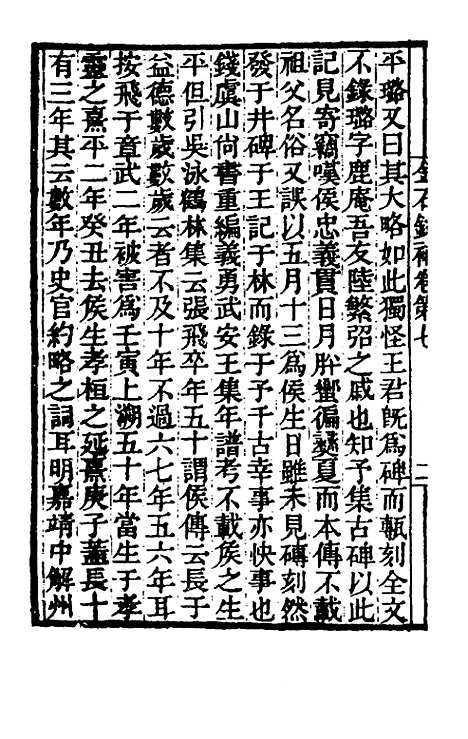 金石錄補卷第七
二
平璐又曰其大略如此獨怪王君旣爲碑而甎刻全文
不錄璐字鹿庵吾友陸繁弨之戚也知予集古碑以此
記見寄竊嘆侯忠義貫日月肸蠁徧夏而本傳不載
祖父名俗又誤以五月十三爲侯生日雖未見磚刻然
發于井碑于王記于林而錄于予千古幸事亦快事也
錢虞山尙書重編義勇武安王集年譜考不載侯之生
平但引吳泳鶴林集云張飛卒年五十謂侯傳云長于
益德數歲數歲云者不及十年不過六七年五六年耳
按飛于章武二年被害爲壬寅上溯五十年當生于孝
靈之熹平二年癸丑去侯生孝桓之延熹庚子蓋長十
有三年其云數年乃史官約略之詞耳明嘉靖中解州